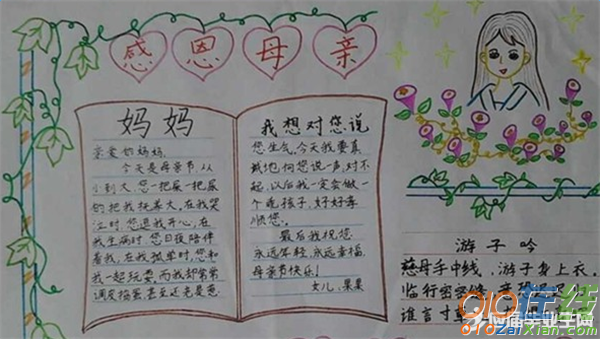 感恩母亲
妈妈
亲爱的妈妈,
今天是母亲节,从
小到大,您一把屎一把尿
的把我抚养大,在我哭
泣时,您逗我开心,在
我生病时,您日夜陪伴
着我,在我孤单时,您和
我一起玩耍,而我却常常
调皮捣蛋,甚至还老是惹
我想对您说
您生气,今天我要真
诚地向您说一声,对不
起,以后我一定会做一
个乖孩子,好好孝
顺您。
最后我祝您
永远年轻,永远幸福,
母亲节快乐!
女儿:果果
游子吟
慈母手中线,游子身上衣。
临行密密缝,意恐
谁言寸草
910在线
910ZaiXian.com